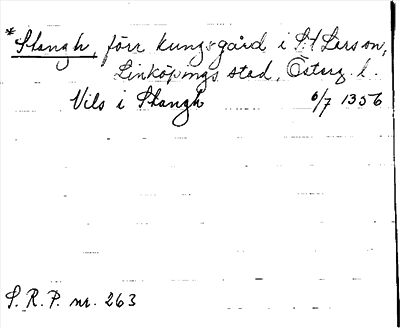 *Stangh, förr kungsgård i S:t Lars sn,
Linköpings stad, Österg. l.
Nils i Stangh 6/7 1356
S. R. P. nr. 263